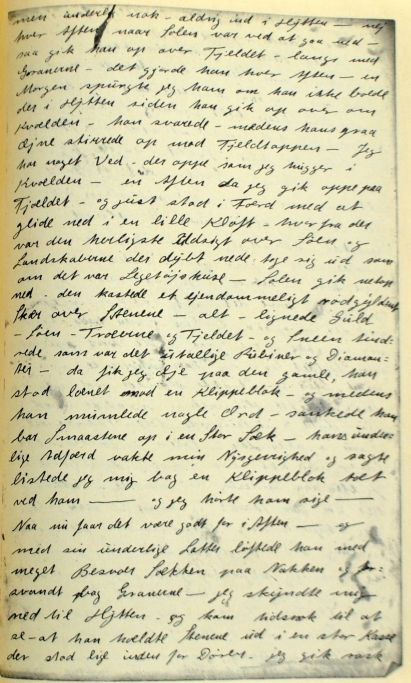 men underlig nok - aldrig ind i Hytten - nej
hver Aften naar Solen var ved at gaa ned -
saa gik han op over Fjeldet - langs med
Granerne - det gjorde han hver Aften - en
Morgen spurgte jeg ham om han ikke boede
der i Hytten siden han gik op over om
Kvælden - han svarede - medens hans graa
Øjne stirrede op mod Fjeldtoppen - Jeg
har noget Ved - der oppe som jeg hugger i
Kvælden - en Aften da jeg gik oppe paa
Fjældet - og just stod i Færd med at
glide ned i en lille Kløft - hvorfra der
var den herligste Udsigt over Søen og
Landskaberne der dybt nede tog sig ud som
om det var Legetøjshuse - Solen gik netop
ned - den kastede et ejendommeligt rødgyldent
Skær over Stenene - alt - lignede Guld
- Søen - Træerne og Fjeldet - og Sneen tind-
rede som var det utallige Rubiner og Diaman-
ter - da fik jeg Øje paa den gamle, han
stod lænet mod en Klippeblok - og medens
han mumlede nogle Ord - samlede han
bar Smaastene op i en Stor Sæk - hans under-
lige Adfærd vakte min Nysgerrighed og sagte
listede jeg mig bag en Klippeblok tæt
ved ham - og jeg hørte ham sige -
Naa nu faar det være godt for i Aften - og
med sin underlige Latter løftede han med
meget Besvær Sækken paa Nakken og for-
svandt bag Granerne - jeg skyndte mig
ned til Hytten - og kom tidsnok til at
se - at han hældte Stenene ud i en stor Kasse
der stod lige inden for Døren - jeg gik rask